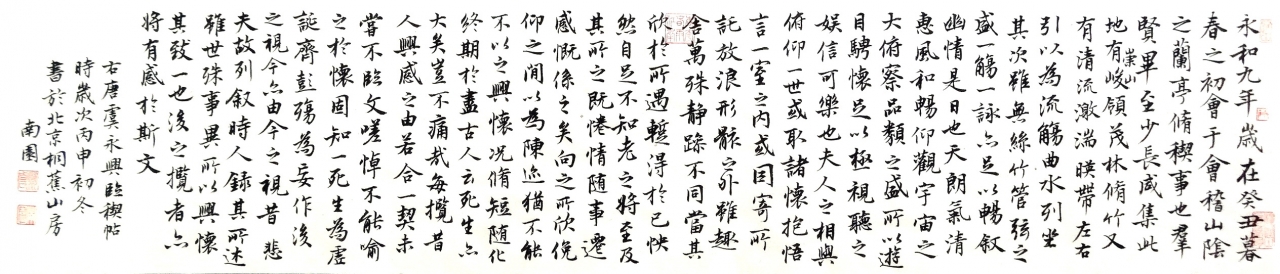 永和九年歲在癸丑暮
春之初會于會稽山陰
之蘭亭脩稧事也群
賢畢至少長咸集此
地有崇山峻領茂林脩竹又
有清流激湍暎帶左右
引以為流觴曲水列坐
其次雖無絲竹管弦之
盛一觴一詠亦足以暢叙
幽情是日也天朗氣清
惠風和暢仰觀宇宙之
大俯察品類之盛所以遊
目騁懷足以極視聽之
娛信可樂也夫人之相與
俯仰一世或取諸懷抱悟
言一室之內或因寄所
託放浪形骸之外雖趣
舍萬殊靜躁不同當其
欣於所遇蹔得於己怏
然自足不知老之將至及
其所之既惓情隨事遷
感慨係之矣向之所欣俛
仰之間以為陳迹猶不能
不以之興懷況脩短隨化
終期於盡古人云死生亦
大矣豈不痛哉每攬昔
人興感之由若合一契未
嘗不臨文嗟悼不能喻
之於懷固知一死生為虛
誕齊彭殤為妄作後
之視今亦由今之視昔 悲
夫故列叙時人錄其所述
雖世殊事異所以興懷
其致一也後之攬者亦
將有感於斯文
右唐虞永興臨稧帖
時歲次丙申初冬
書於北京桐蕉山房
南園